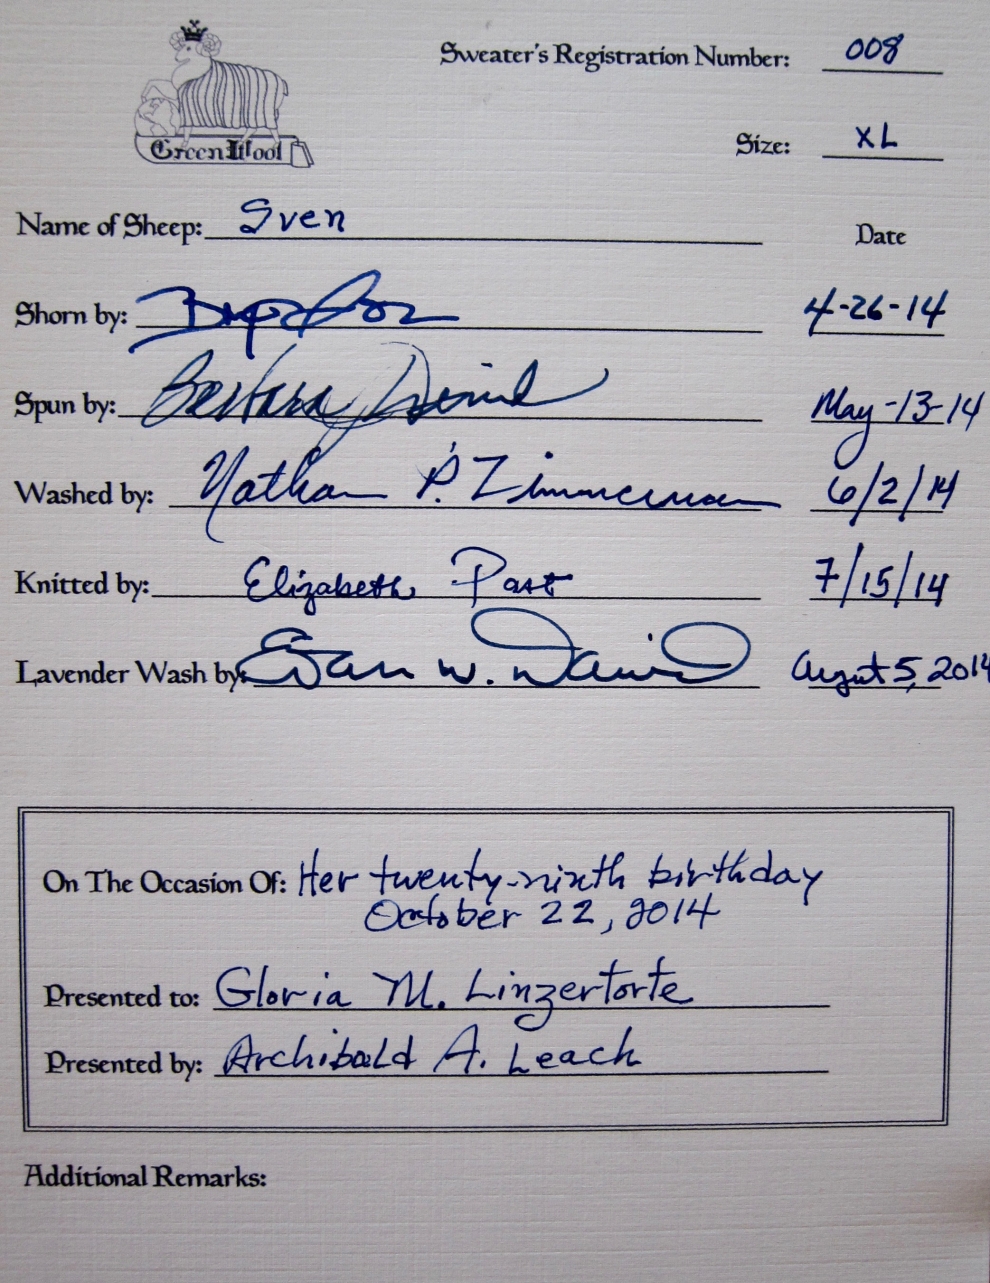 Sweater's Registration Number: 008
GreenWool
Size: XL
Name of Sheep: Sven
Date
Shorn by: 4-26-14
Spun by: Barbara May-13-14
Washed by: Nathan P. Zimmerman 6/2/14
Knitted by: Elizabeth Past 7/15/14
Lavender Wash by: W. August 5, 2014
On The Occasion Of: Her twenty-ninth birthday
October 22, 2014
Presented to: Gloria M. Linzertorte
Presented by: Archibald A. Leach
Additional Remarks: